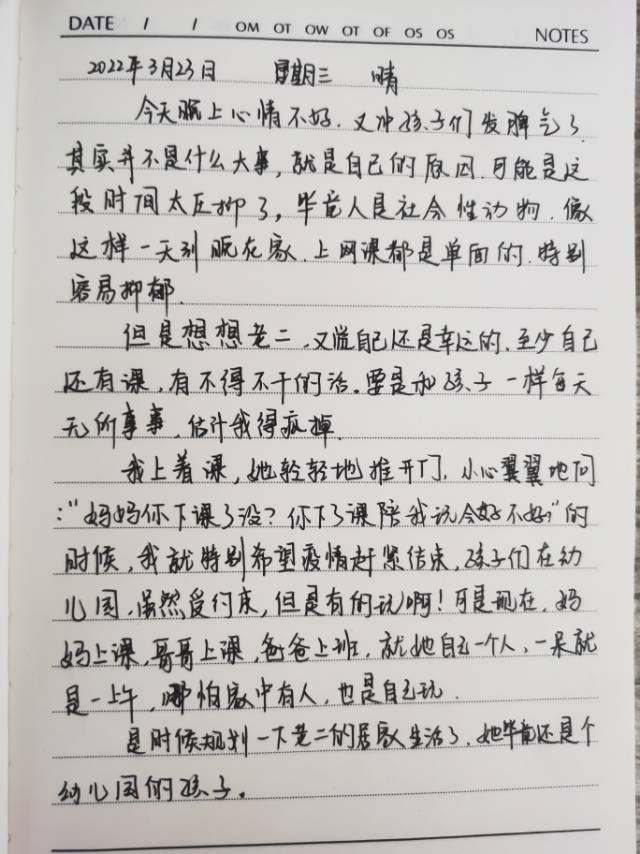 DATE / / OM OT OW OT OF OS OS NOTES
2022年3月23日 星期三 晴
今天晚上心情不好,又冲孩子们发脾气了.
其实并不是什么大事,就是自己的原因.可能是这
段时间太压抑了,毕竟人是社会性动物.像
这样一天到晚在家.上网课都是单面的.特别
容易抑郁.
但是想想老二,又觉自己还是幸运的.至少自己
还有课,有不得不干的活。要是和孩子一样每天
无所事事,估计我得疯掉.
我上着课,她轻轻地推开门,小心翼翼地问
:“妈妈你下课了没?你下了课陪我玩会好不好?”的
时候,我就特别希望疫情赶紧结束,孩子们在幼
儿园,虽然受约束,但是有的玩啊!可是现在,妈
妈上课,哥哥上课,爸爸上班,就她自己一个人,一呆就
是一上午,哪怕家中有人,也是自己玩.
是时候规划一下老二的居家生活了.她毕竟还是个
幼儿园的孩子。